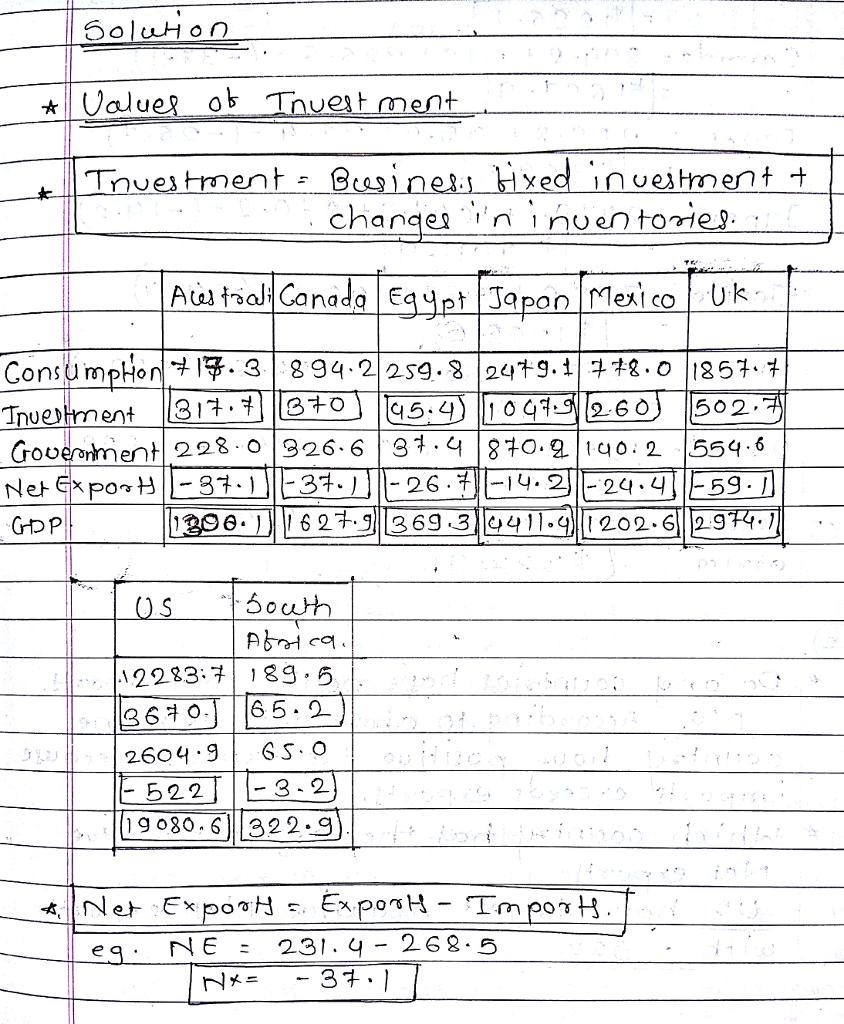 Solution
* Values of Investment
* Investment = Business fixed investment +
changes in inventories.
Australi Canada Egypt Japan Mexico UK
Consumption 717.3 894.2 259.8 2479.1 778.0 1857.7
Investment 317.7 370 95.4 1047.9 260 502.7
Government 228.0 326.6 37.4 870.2 140.2 554.6
Net Exports -37.1 -37.1 -26.7 -14.2 -24.4 -59.1
GDP 1627.9 369.3 4411.9 1202.6 2974.1
US South
Africa.
12283.7 189.5
3670. 65.2
2604.9 65.0
-522 -3.2
19080.6 322.9
*. Net Exports = Exports - Imports.
eg. NE = 231.4 - 268.5
NX = -37.1